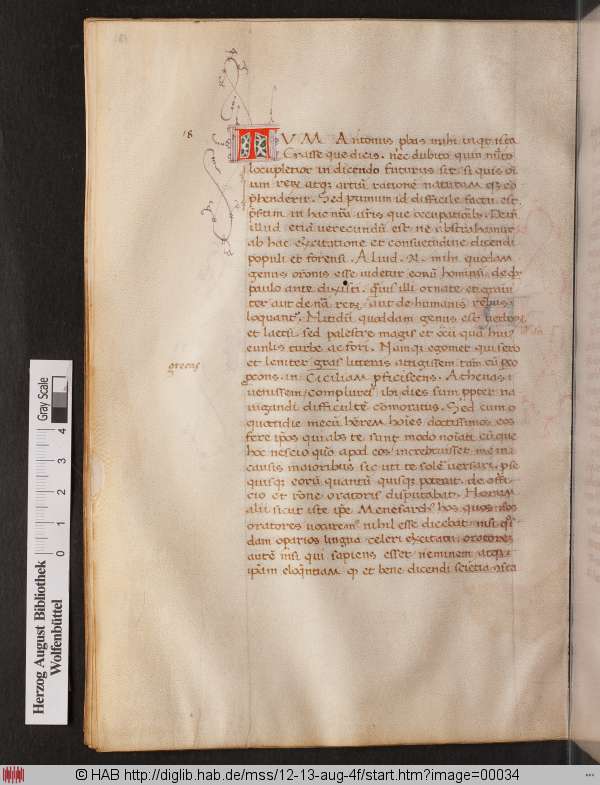 18
TVM Antonius pbas mihi inqt ista
Crasse que dicis. nec dubito quin mlto
locupletior in dicendo futurus sit si quis oi
um rerꝝ atqꝫ artiū rationē naturam qꝫ cō
phenderit. Sed primum id difficile factu est
in hac nrā uita urīs que occupationib. Deīn
illud etiā uerecundū est ne abstrahamur
ab hac exercitatione et consuetudine dicendi
populi et forensi. Aliud .N. mihi quoddam
genus orōnis esse uidetur eorū hominū de qbꝫ
paulo ante dixisti. Quis illi ornate et graui
ter aut de nāra rerꝝ aut de humanis rebus
loquantʳ. Nitidū quoddam genus est uerborꝝ
et laetū sed palestre magis et olei quā hui
ciuilis turbe ac fori. Namqꝫ egomet qui sero
et leuiter gras litteras attigissem tam cū pro
grecas
cons. in Ciciliam pficiscens. Athenas
uenissem complures ibi dies sum ppter na
uigandi difficultē comoratus. Sed cum
quottidie mecū hērem hoīes doctissimos eos
fere ipsos qui abs te sunt modo noīati cū que
hoc nescio quō apud eos increbruisset me in
causis maioribus sic uti te solē uersari. p se
quisqꝫ eorū quantū quisqꝫ poterat. de offi
cio et rōne oratoris disputabat. Horum
alii sicut iste ipse Menesarchꝰ hos quos nos
oratores uocarem nihil esse dicebat nisi qs
dam operios lingua celeri exercitata. oratorē
autē nisi qui sapiens esset neminem atqꝫ
ipsam eloqntiam qꝫ et bene dicendi scīetia ista
Herzog August Bibliothek
Wolfenbüttel
Gray Scale
0 1 2 3 4
© HAB http://diglib.hab.de/mss/12-13-aug-4f/start.htm?image=00034